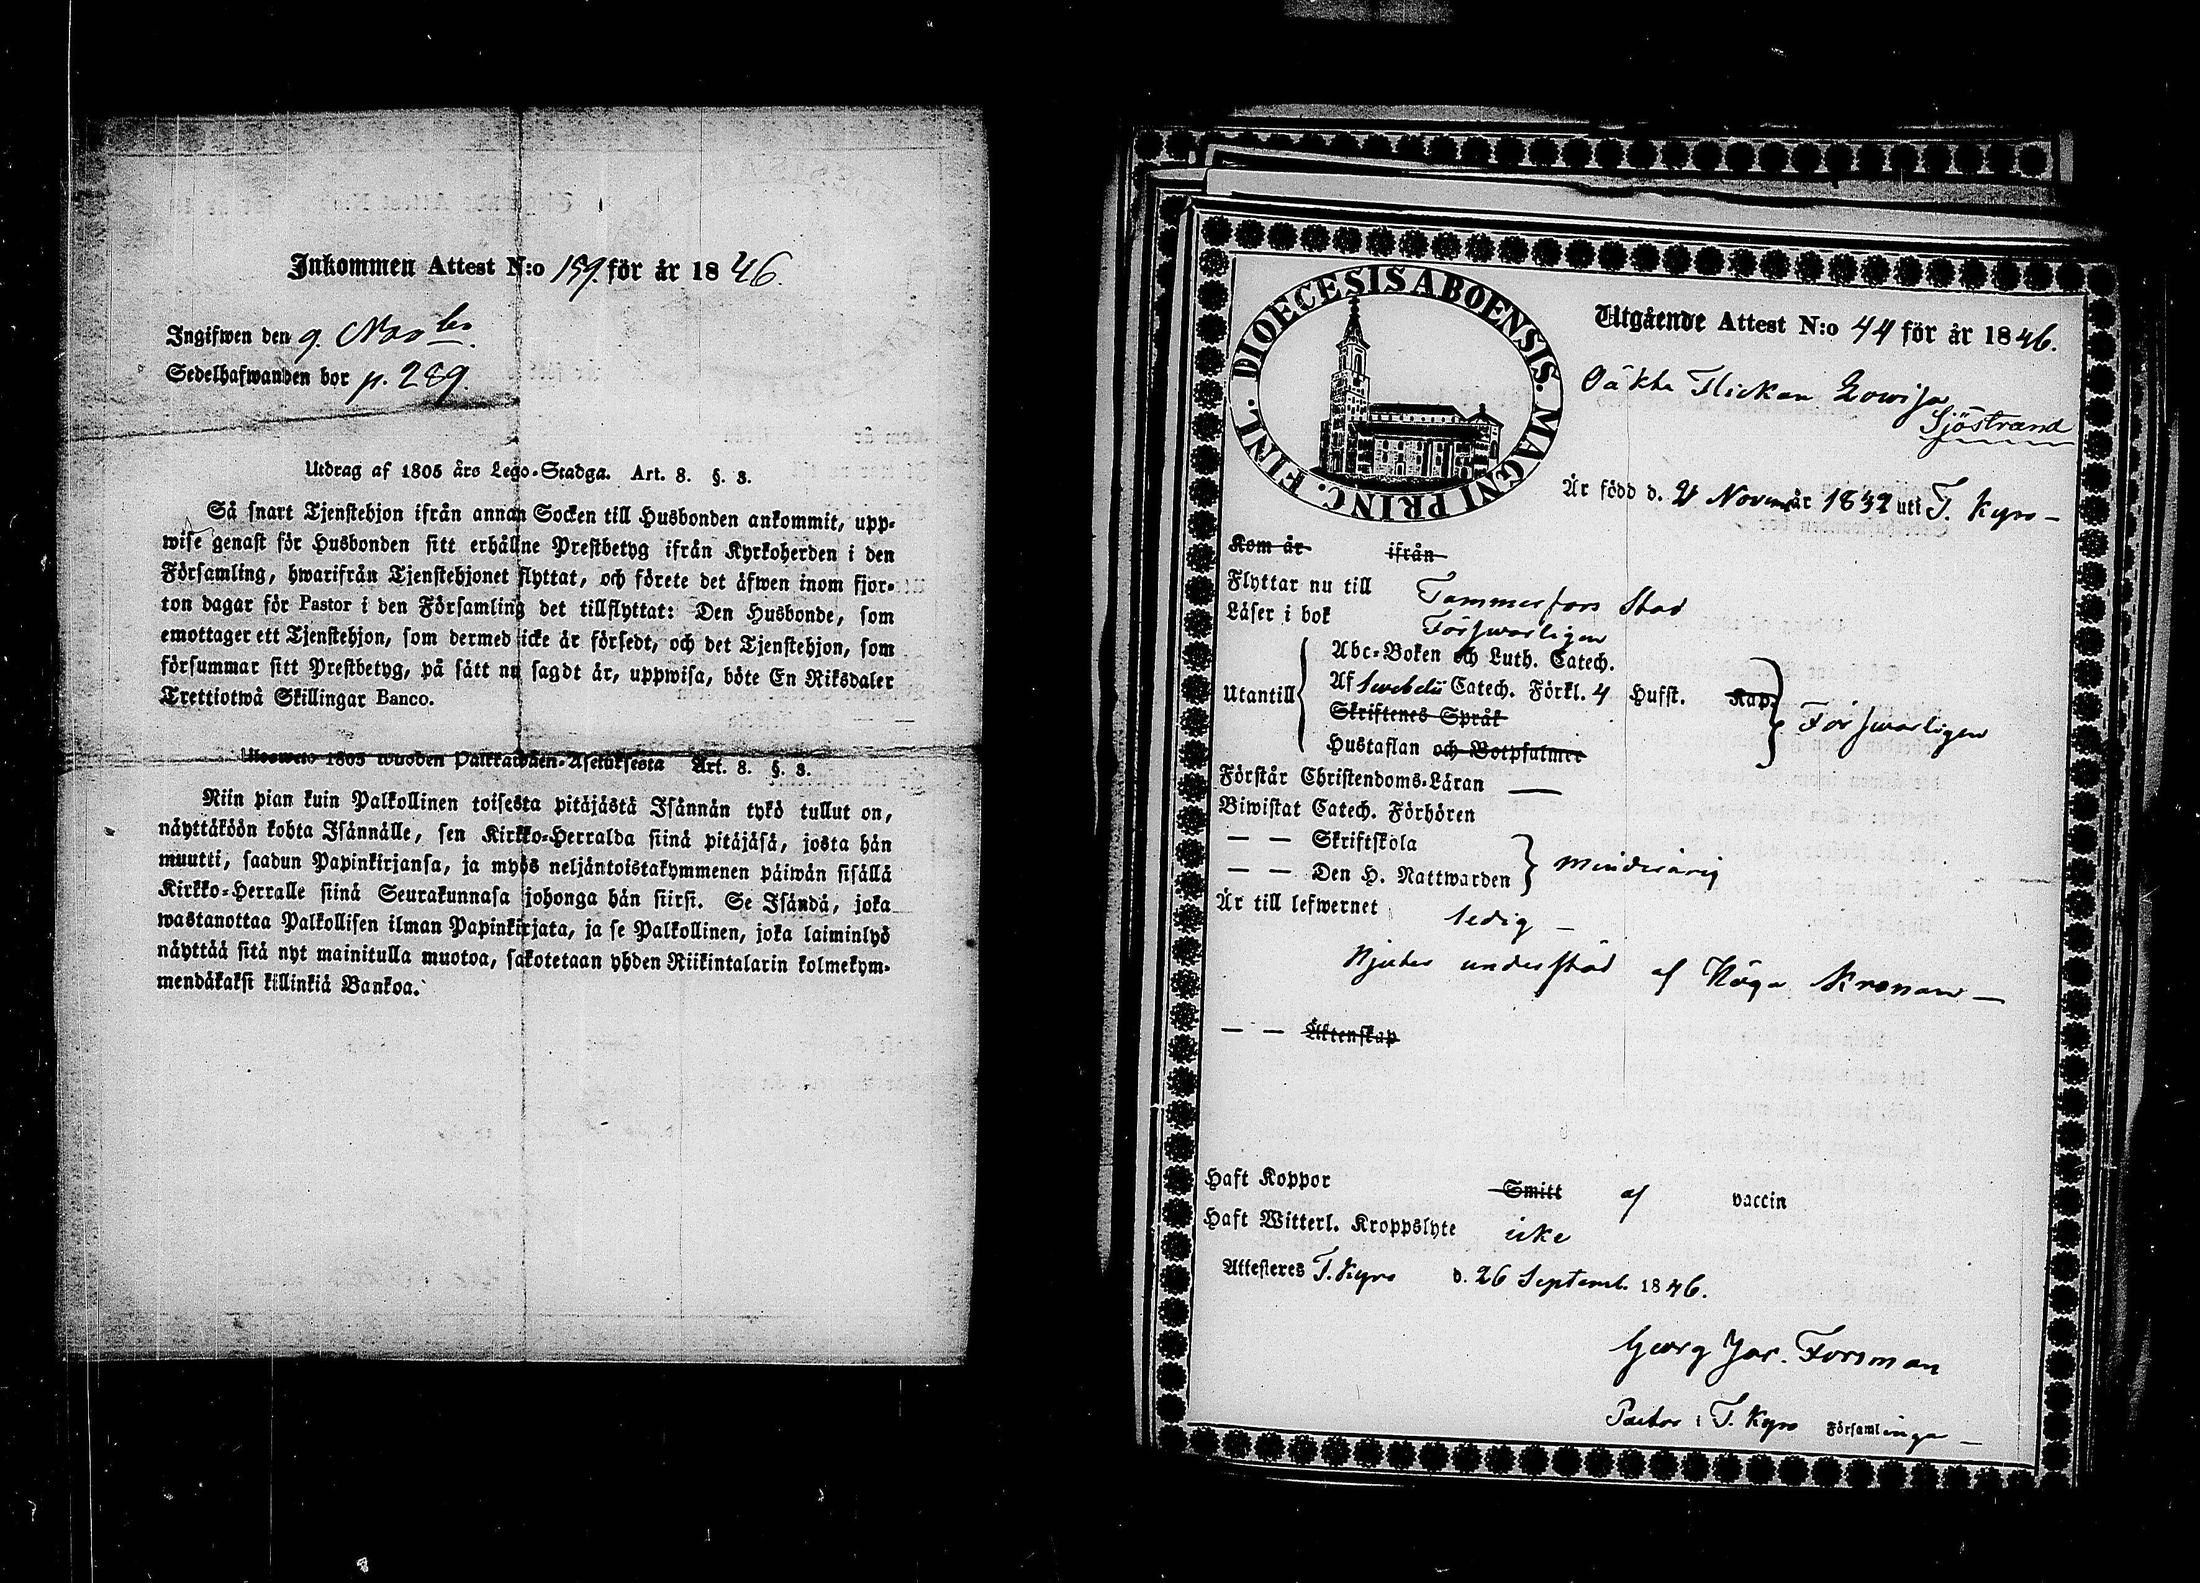 Inkommen Attest N:o 159. för år 1846.
Ingifwen den 9. Novbr.
Sedelhafwanden bor p. 289.
Utdrag af 1805 års Lego-Stadga. Art. 8. §. 3.
Så snart Tjenstehjon ifrån annan Socken till Husbonden ankommit, upp-
wise genast för Husbonden sitt erhållne Prestbetyg ifrån Kyrkoherden i den
Församling, hwarifrån Tjenstehjonet flyttat, och förete det äfwen inom fjor-
ton dagar för Pastor i den Församling det tillflyttat: Den Husbonde, som
emottager ett Tjenstehjon, som dermed icke är försedt, och det Tjenstehjon, som
försummar sitt Prestbetyg, på sätt nu sagdt är, uppwisa, böte En Riksdaler
Trettiotwå Skillingar Banco.
Ulosweto 1805 wuoden Palkkawäen-Asetuksesta Art. 8. §. 3.
Niin pian kuin Palkollinen toisesta pitäjästä Isännän tykö tullut on,
näyttäköön kohta Isännälle, sen Kirkko-Herralda siinä pitäjäsä, josta hän
muutti, saadun Papinkirjansa, ja myös neljäntoistakymmenen päiwän sisällä
Kirkko-Herralle siinä Seurakunnasa johonga hän siirsi. Se Isändä, joka
wastanottaa Palkollisen ilman Papinkirjata, ja se Palkollinen, joka laiminlyö
näyttää sitä nyt mainitulla muotoa, sakotetaan yhden Riikintalarin kolmekym-
mendäkaksi killinkiä Bankoa.
DIOECESIS ABOENSIS. MAGNI PRINC. FINL.
Utgående Attest N:o 44 för år 1846.
Oäkta Flickan Lowisa
Sjöstrand
Är född d. 21 Novem år 1832 uti T. Kyro
Kom år ifrån
Flyttar nu till Tammerfors Stad
Läser i bok Förswarligen
Utantill
Abc-Boken och Luth. Catech.
Af Swebelii Catech. Förkl. 4 Hufst. Kap.
Skriftenes Språk
Hustaflan och Botpsalmer
Förswarligen
Förstår Christendoms-Läran —
Biwistat Catech. Förhören
— — Skriftskola
— — Den H. Nattwarden
minderårig
Är till lefwernet ledig —
Njuter understöd af Höga Kronan —
— — Äktenskap
Haft Koppor Smitt af vaccin
Haft Witterl. Kroppslyte icke
Attesteres T. Kyro d. 26 Septemb. 1846.
Georg Jac. Forsman
Pastor i T. Kyro Församlinga —